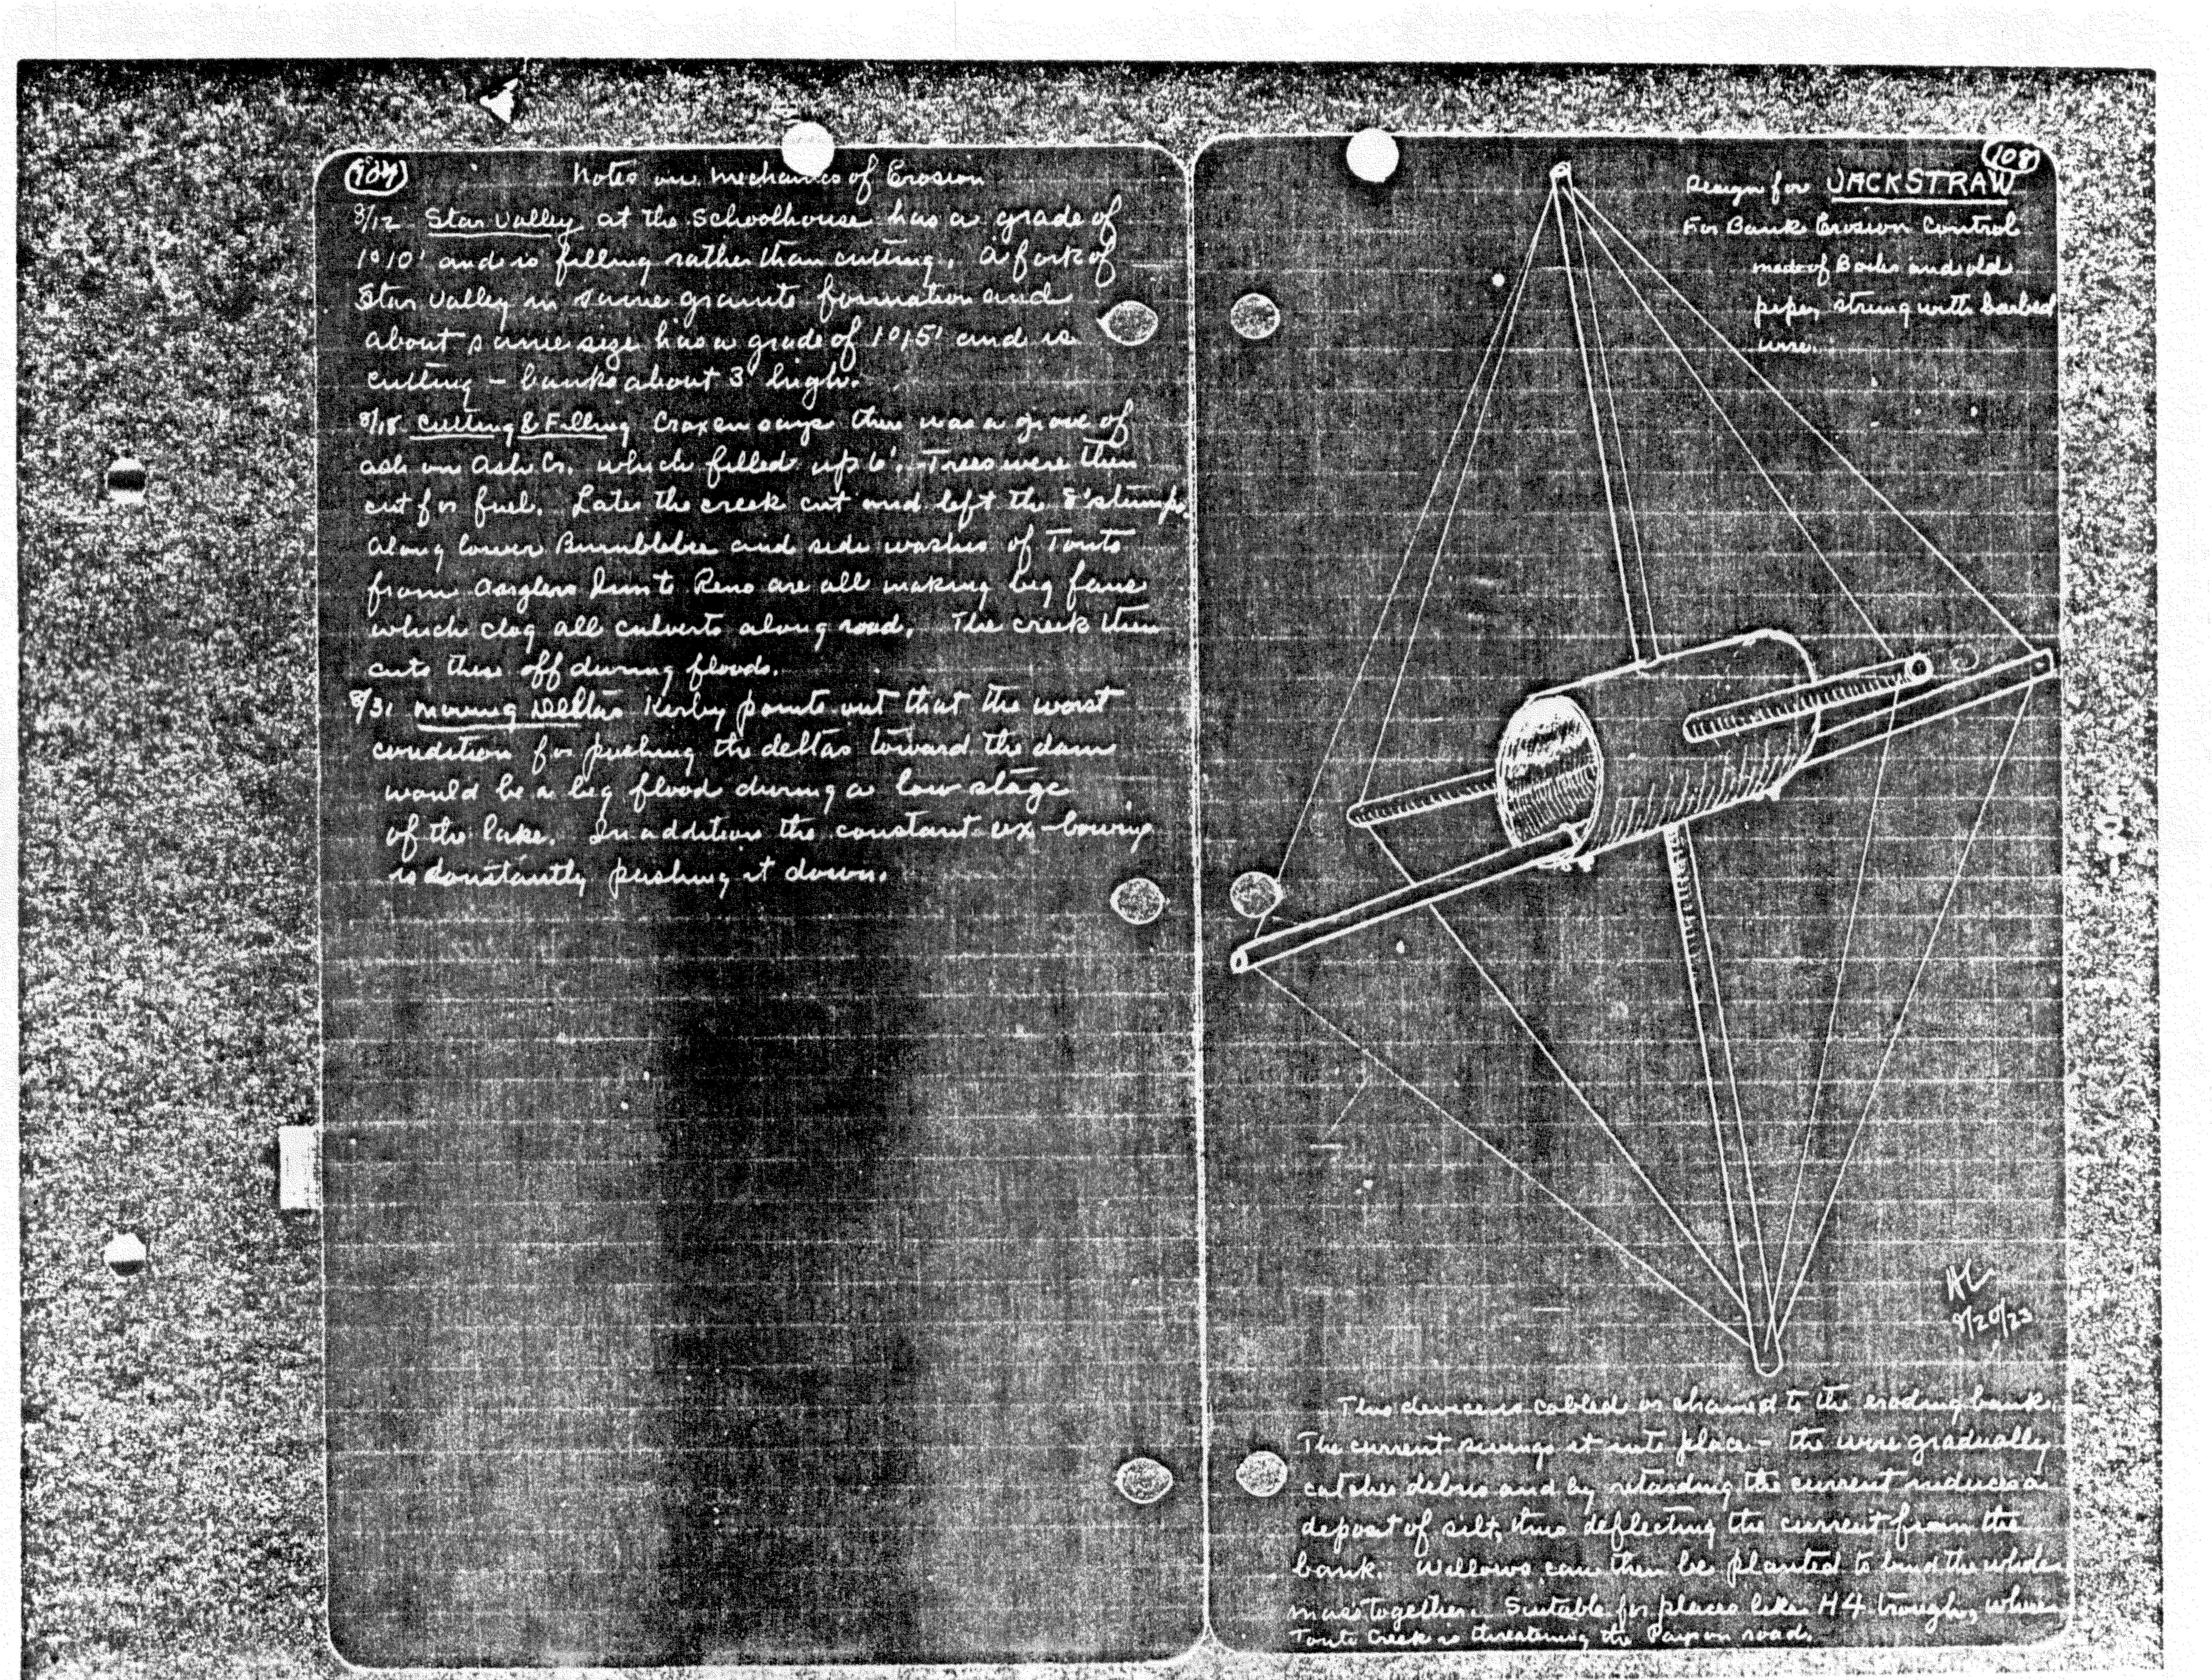 107
Notes on Mechanics of Erosion
8/12 Star Valley at the Schoolhouse has a grade of
1°10' and is filling rather than cutting. A fork of
Star Valley in same granite formation and
about same size has a grade of 1°15' and is
cutting - banks about 3' high.
8/18 Cutting & Filling Croxen says there was a grove of
ash on Ash Cr. which filled up 6'. Trees were then
cut for fuel. Later the creek cut and left the 8' stumps.
Along lower Bumblebee and side washes of Tonto
from to Reno are all making big fans
which clog all culverts along road. The creek then
cuts these off during floods.
8/31 Moving Deltas Kirby points out that the worst
condition for pushing the deltas toward the dam
would be a big flood during a low stage
of the lake. In addition the constant ox-bowing
is constantly pushing it down.
108
Design for JACKSTRAW
For Bank Erosion Control
made of and old
pipes, strung with barbed
wire.
AL
8/20/23
This device is cabled or chained to the eroding bank.
The current swings it into place - the wire gradually
catches debris and by retarding the current induces a
deposit of silt, thus deflecting the current from the
bank. Willows can then be planted to bind the whole
mass together. Suitable for places like H4 trough, where
Tonto Creek is threatening the Payson road.